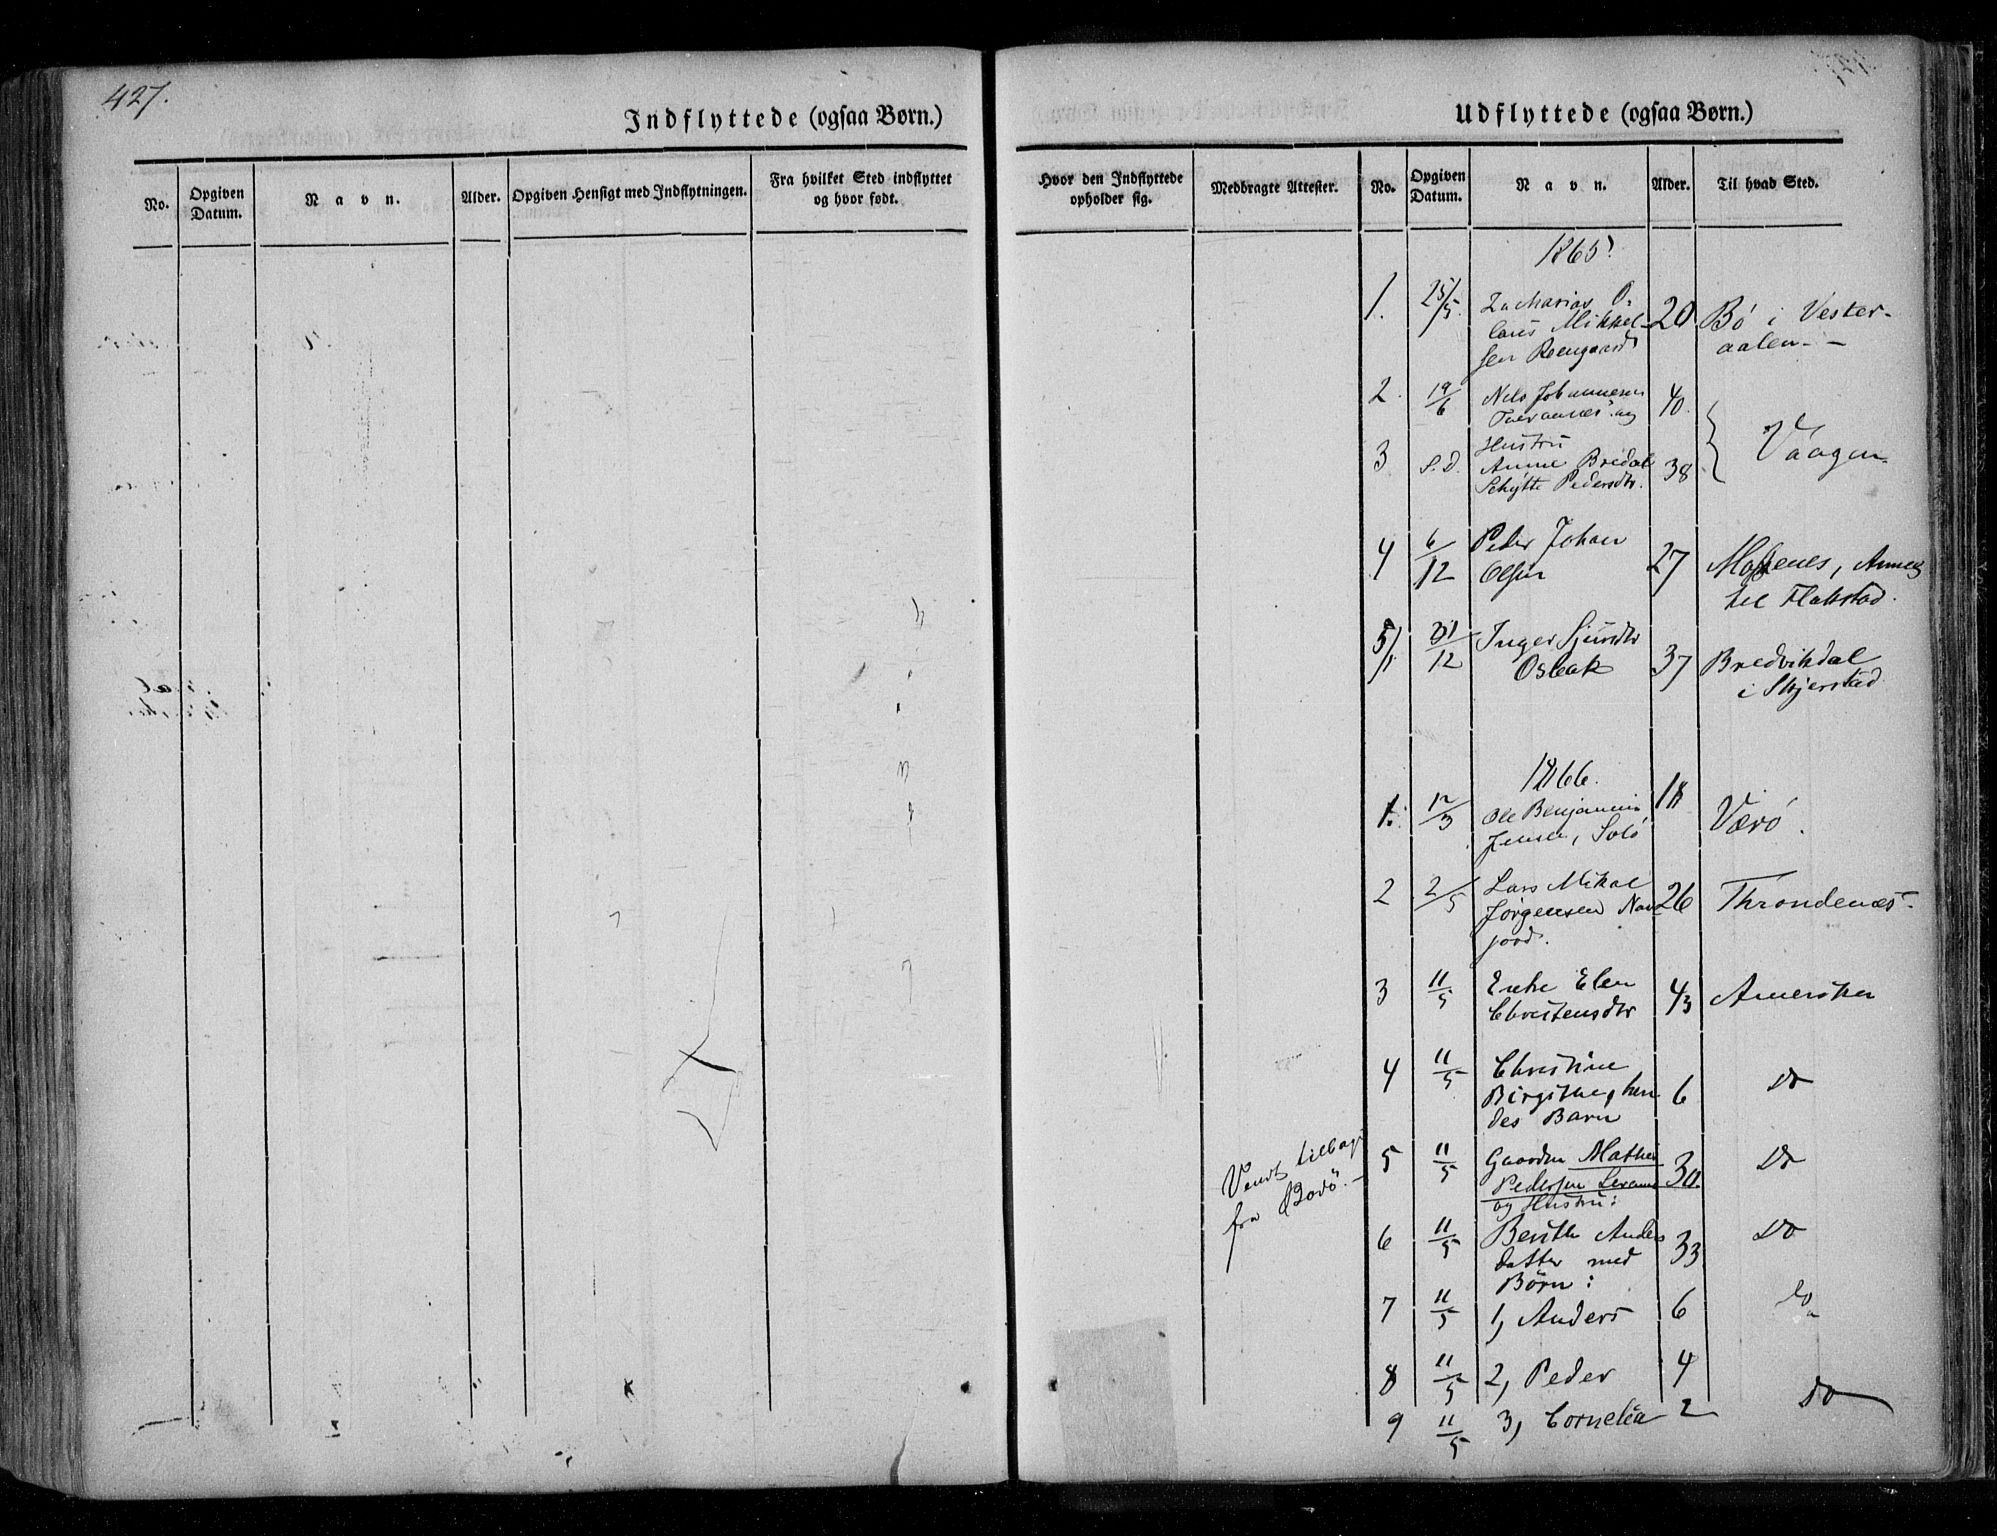 427.
Indflyttede (ogsaa Børn.)
No.
Opgiven Datum.
Navn.
Alder.
Opgiven Hensigt med Indflytningen.
Fra hvilket Sted indflyttet og hvor født.
Udflyttede (ogsaa Børn.)
Hvor den Indflyttede opholder sig.
Medbragte Attester.
No.
Opgiven Datum.
Navn.
Alder.
Til hvad Sted.
1865.
1. 25/5. Zacharias O- 20 Bö i Vester-
laus Mikkel- aalen -
sen Reengaard
2. 19/6 Nils Johannesen 40.
og
Hustru Vaagen.
3 S.D. Anne Bredal 38
Schytte Pedersdtr.
4 6/12 Peder Johan 27 Moskenes, Annex
Olsen til Flakstad.
5/. 31/12 Inger Sjursdtr 37 Bredvikdal
Osbak i Skjerstad
1866.
1. 12/3 Ole Benjamin 18 Værö.
Jensen, Solö
2 2/5 Lars Mikal 26 Throndenæs.
Jörgensen Nov-
jord.
3 11/5 Enke Elen 43 Amerika
Christensdtr
4 11/5 Christine 6 Do
Birgithe, hen
des Barn
Vendt tilbage
fra Bodö. -
5 11/5 Gaardm Mathis 30. Do
Pedersen
og Hustru:
6 11/5 Berith Anders 33 Do
datter med
Börn:
7 11/5 1, Anders 6 Do
8 11/5 2, Peder 4
9 11/5 3, Cornelia 2 Do